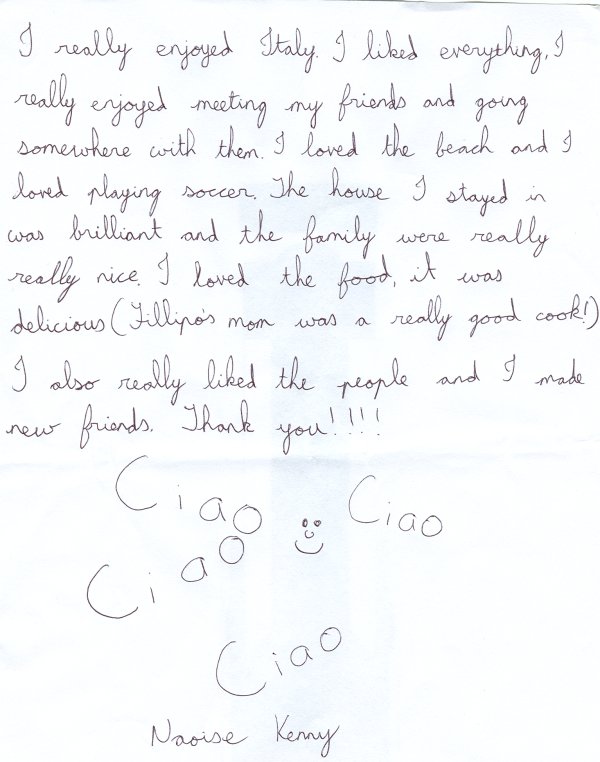 I really enjoyed Italy. I liked everything, I
really enjoyed meeting my friends and going
somewhere with them. I loved the beach and I
loved playing soccer. The house I stayed in
was brilliant and the family were really
really nice. I loved the food, it was
delicious (Fillipo's mom was a really good cook!)
I also really liked the people and I made
new friends. Thank you!!!!
Ciao Ciao
Ciao
Ciao
Naoise Kenny